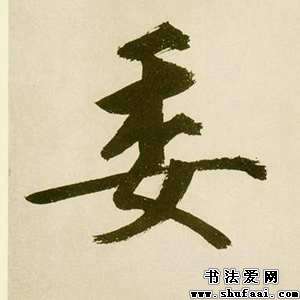 委
书法爱网
www.shufaai.com